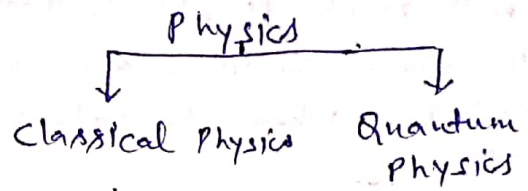 Physics
Classical Physics Quantum
Physics